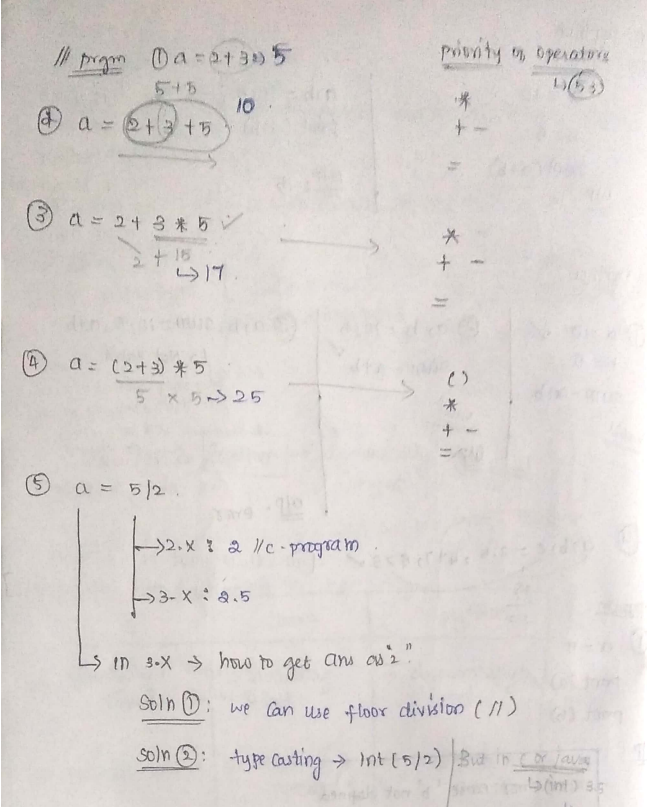 /// prgm ① a = 2+3 => 5
priority of operators
↳ (53)
5+5
10
*
+ -
=
② a = 2+3+5
③ a = 2 + 3 * 5 ✓
2 + 15
↳ 17
*
+ -
=
④ a = (2+3) * 5
5 x 5 ~> 25
()
*
+ -
=
⑤ a = 5/2
→ 2.x : 2 //c-program
→ 3-x : 2.5
↳ in 3.x → how to get ans as "2".
Soln ①: we can use floor division (//)
Soln ②: type casting → Int (5/2) | But in C or Java
↳ (int) 3.5